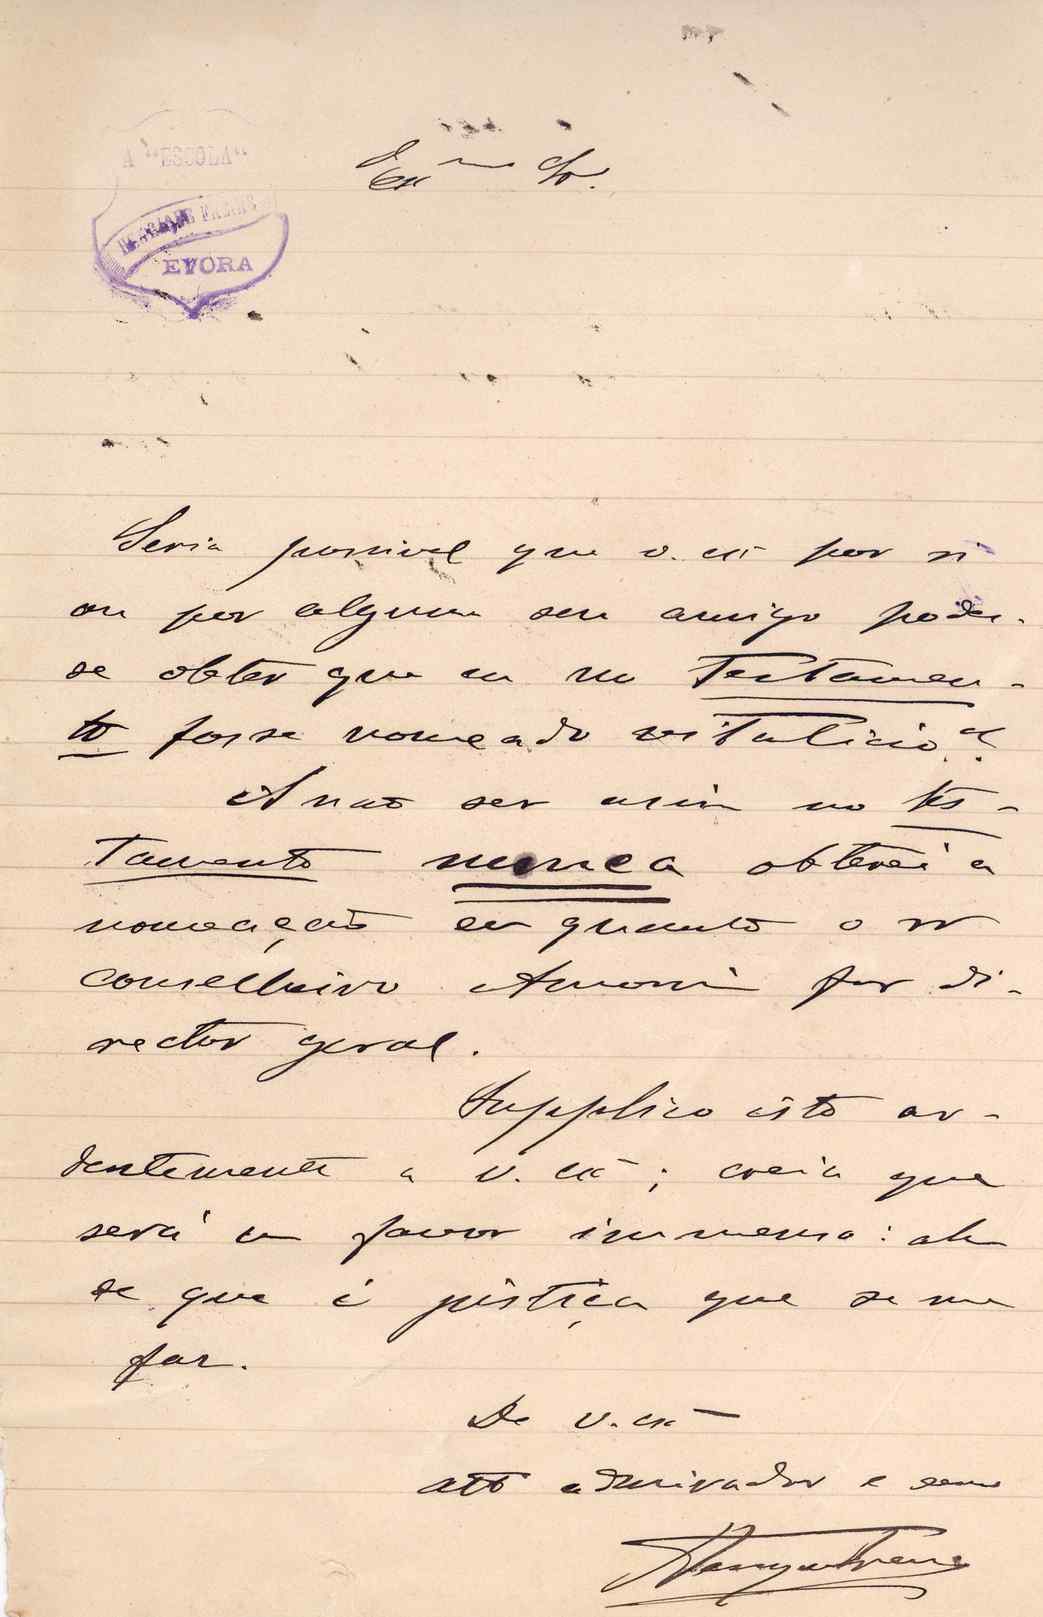 A "ESCOLA"
EVORA
Ex.mo Sr.
Seria possivel que v. exª por si
ou por algum seu amigo podes-
se obter que eu no Testamen-
to fosse nomeado vitalicio?
A nao ser assim no tes-
tamento nunca obterei a
nomeação enquanto o sr
conselheiro Amorim for di-
rector geral.
Supplico isto ar-
dentemente a v. exª; creia que
será um favor immenso: alem
de que é justiça que se me
faz.
De v. exª
attº admirador e